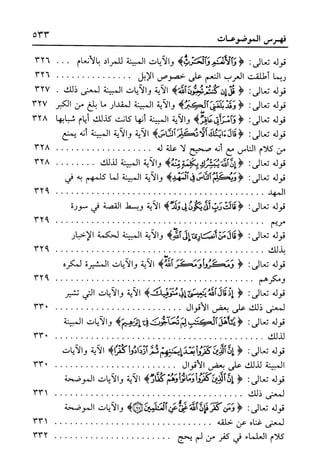 فهـرس الموضوعـات ٥٣٣
قوله تعالى: ﴿ وَالْأَنْعَامِ وَالْحَرْثِ ﴾ والآيات المبينة للمراد بالأنعام . . . ٣٢٦
ربما أطلقت العرب النعم على خصوص الإبل . . . . . . . . . . . . . . ٣٢٦
قوله تعالى: ﴿ قُلْ إِن كُنتُمْ تُحِبُّونَ اللَّهَ ﴾ الآية والآيات المبينة لمعنى ذلك . ٣٢٧
قوله تعالى: ﴿ وَقَدْ بَلَغَنِيَ الْكِبَرُ ﴾ والآية المبينة لمقدار ما بلغ من الكبر ٣٢٧
قوله تعالى: ﴿ وَامْرَأَتِي عَاقِرٌ ﴾ والآية المبينة أنها كانت كذلك أيام شبابها ٣٢٨
قوله تعالى: ﴿ قَالَ ءَايَتُكَ أَلَّا تُكَلِّمَ النَّاسَ ﴾ الآية والآية المبينة أنه يمنع
من كلام الناس مع أنه صحيح لا علة له . . . . . . . . . . . . . . . . . ٣٢٨
قوله تعالى: ﴿ إِنَّ اللَّهَ يُبَشِّرُكِ بِكَلِمَةٍ مِّنْهُ ﴾ والآية المبينة لذلك . . . . . . . ٣٢٨
قوله تعالى: ﴿ وَيُكَلِّمُ النَّاسَ فِي الْمَهْدِ ﴾ والآية المبينة لما كلمهم به في
المهد . . . . . . . . . . . . . . . . . . . . . . . . . . . . . . . . ٣٢٩
قوله تعالى: ﴿ قَالَتْ رَبِّ أَنَّى يَكُونُ لِي وَلَدٌ ﴾ الآية وبسط القصة في سورة
مريم . . . . . . . . . . . . . . . . . . . . . . . . . . . . . . . . ٣٢٩
قوله تعالى: ﴿ قَالَ مَنْ أَنصَارِي إِلَى اللَّهِ ﴾ والآية المبينة لحكمة الإخبار
بذلك . . . . . . . . . . . . . . . . . . . . . . . . . . . . . . . . ٣٢٩
قوله تعالى: ﴿ وَمَكَرُوا وَمَكَرَ اللَّهُ ﴾ الآية والآيات المشيرة لمكره
ومكرهم . . . . . . . . . . . . . . . . . . . . . . . . . . . . . . ٣٢٩
قوله تعالى: ﴿ إِذْ قَالَ اللَّهُ يَاعِيسَى إِنِّي مُتَوَفِّيكَ ﴾ الآية والآيات التي تشير
لمعنى ذلك على بعض الأقوال . . . . . . . . . . . . . . . . . . . . ٣٣٠
قوله تعالى: ﴿ يَاأَهْلَ الْكِتَابِ لِمَ تُحَاجُّونَ فِي إِبْرَاهِيمَ ﴾ والآيات المبينة
لذلك . . . . . . . . . . . . . . . . . . . . . . . . . . . . . . . . ٣٣٠
قوله تعالى: ﴿ إِنَّ الَّذِينَ كَفَرُوا بَعْدَ إِيمَانِهِمْ ثُمَّ ازْدَادُوا كُفْرًا ﴾ الآية والآيات
المبينة لذلك على بعض الأقوال . . . . . . . . . . . . . . . . . . . ٣٣٠
قوله تعالى: ﴿ إِنَّ الَّذِينَ كَفَرُوا وَمَاتُوا وَهُمْ كُفَّارٌ ﴾ الآية والآيات الموضحة
لمعنى ذلك . . . . . . . . . . . . . . . . . . . . . . . . . . . . . ٣٣١
قوله تعالى: ﴿ وَمَن كَفَرَ فَإِنَّ اللَّهَ غَنِيٌّ عَنِ الْعَالَمِينَ ﴾ والآيات الموضحة
لمعنى غناه عن خلقه . . . . . . . . . . . . . . . . . . . . . . . . . ٣٣١
كلام العلماء في كفر من لم يحج . . . . . . . . . . . . . . . . . . . ٣٣٢